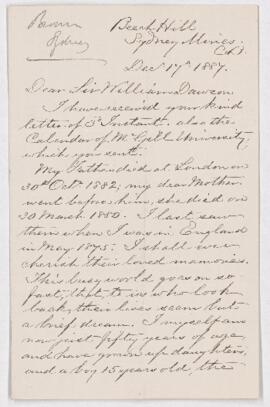 Brown
Sydney
Beech Hill
Sydney Mines.
C.B.
Dec 17th 1887.
Dear Sir William Dawson
I have received your kind
letter of 3rd Instant. also the
Calendar of McGill University
which you sent.
My Father died at London on
30th Oct 1882; my dear Mother
went before him, she died on
20 March 1880. I last saw
them when I was in England
in May 1875: I shall ever
cherish their loved memories.
This busy world goes on so
fast, that, to us who look
back, their lives seem but
a brief dream. I myself am
now just fifty years of age
and have grown up daughters,
and a boy 15 years old, the